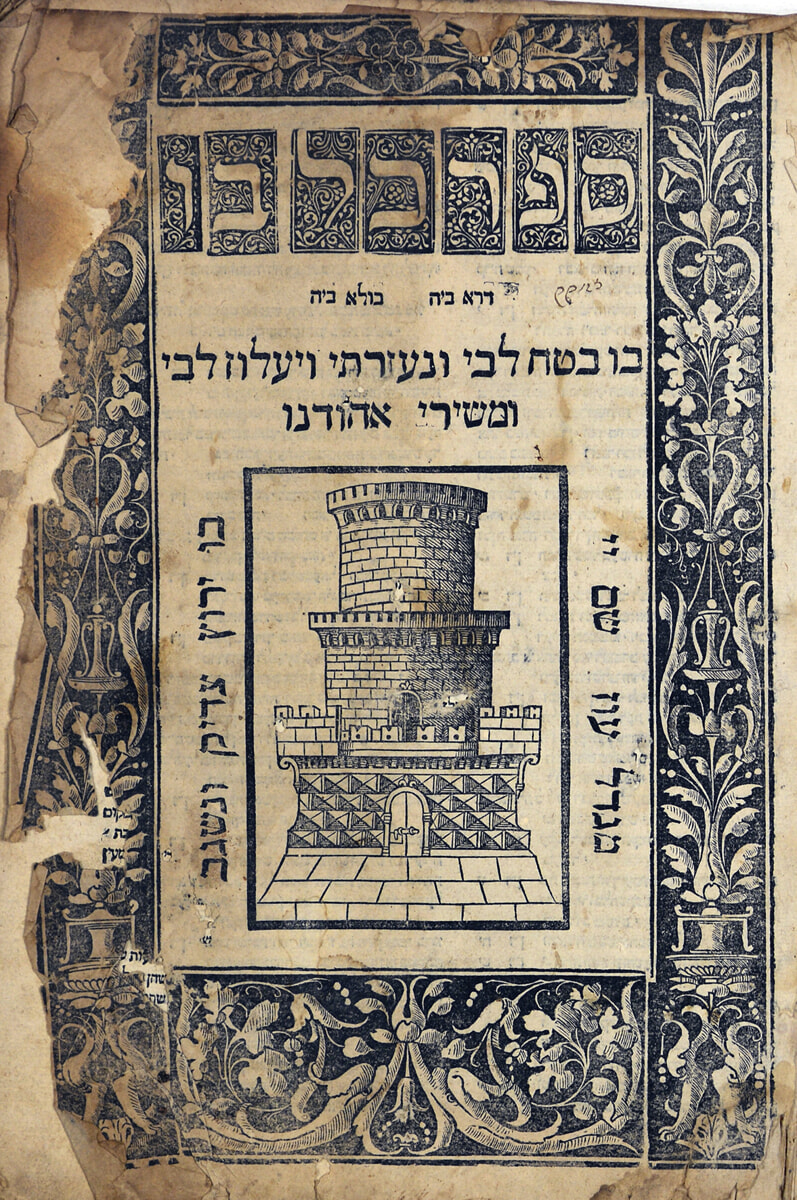 ספר כל בו
דרא ביה בולא ביה
בו בטח לבי ונעזרתי ויעלוז לבי
ומשירי אהודנו
מגדל עוז שם יי
בו ירוץ צדיק ונשגב